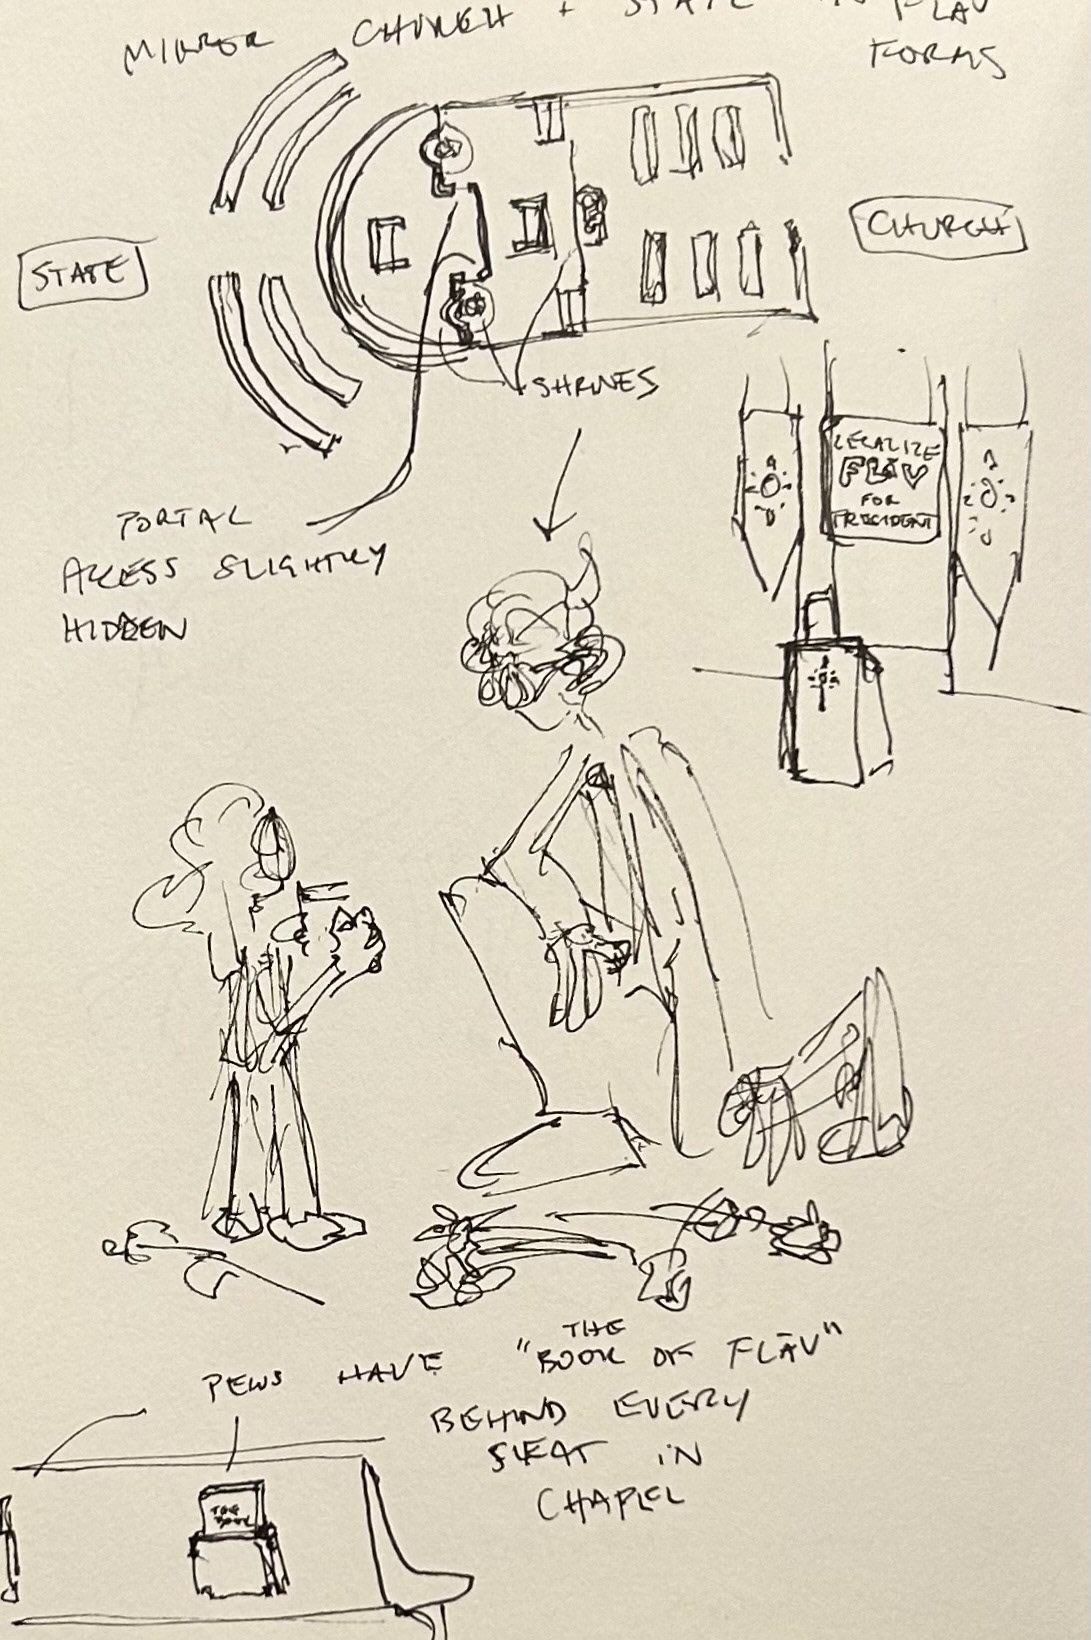 MIRROR CHURCH + STATE FLAV
FORMS
STATE
CHURCH
SHRINES
LEGALIZE
FLĀV
FOR
PRESIDENT
PORTAL
ACCESS SLIGHTLY
HIDDEN
PEWS HAVE "THE BOOK OF FLĀV"
BEHIND EVERY
SEAT IN
CHAPEL
THE
BOOK